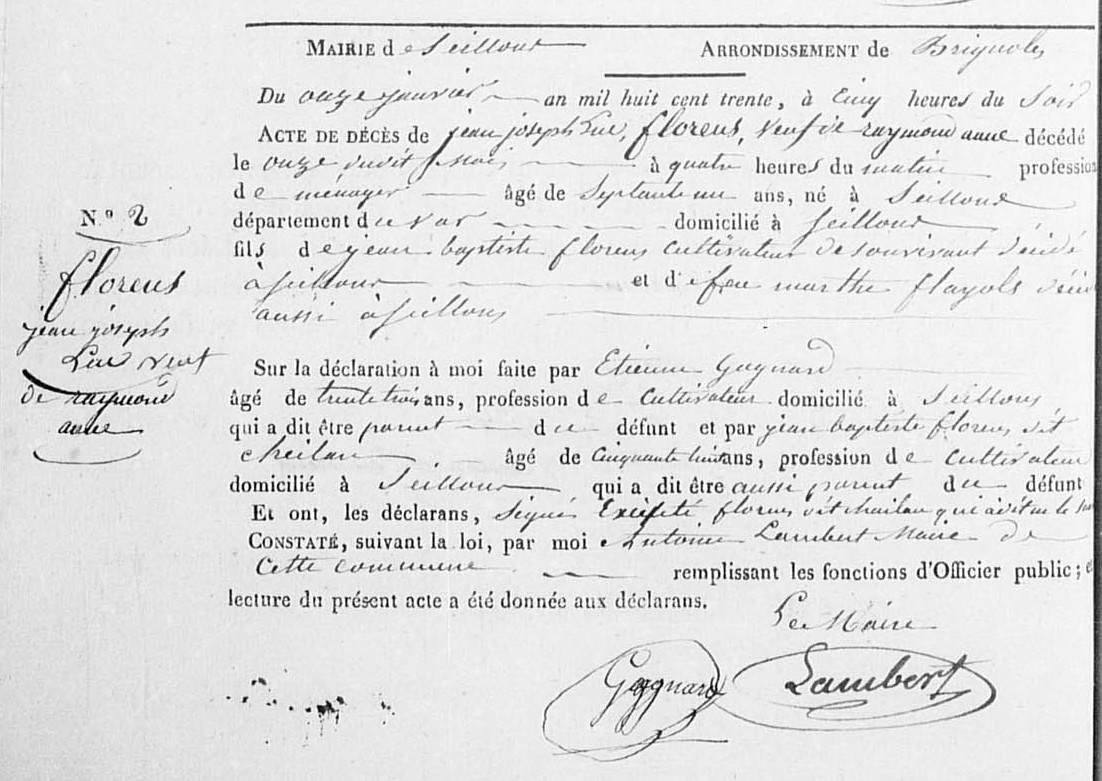 MAIRIE de Seillons ARRONDISSEMENT de Brignoles
Du onze janvier an mil huit cent trente, à Cinq heures du Soir
ACTE DE DÉCÈS de jean joseph Luc, florens, veuf de raymond anne décédé
le onze dudit mois à quatre heures du matin profession
de menager âgé de Septante un ans, né à Seillons
département du var domicilié à Seillons
fils de jean baptiste florens Cultivateur de son vivant décédé
à Seillons et de feu marthe flayols
aussi à Seillons
N.º 2
florens
jean joseph
Luc veuf
de raymond
anne
Sur la déclaration à moi faite par Etienne Gagnard
âgé de trente trois ans, profession de Cultivateur domicilié à Seillons
qui a dit être parent du défunt et par jean baptiste florens dit
cheilan âgé de Cinquante huit ans, profession de Cultivateur
domicilié à Seillons qui a dit être aussi parent du défunt
Et ont, les déclarans, Signés Excépté florens dit cheilan qui a dit ne le
CONSTATÉ, suivant la loi, par moi Antoine Lambert Maire de
Cette commune remplissant les fonctions d'Officier public; et
lecture du présent acte a été donnée aux déclarans.
Le Maire
Gagnard Lambert